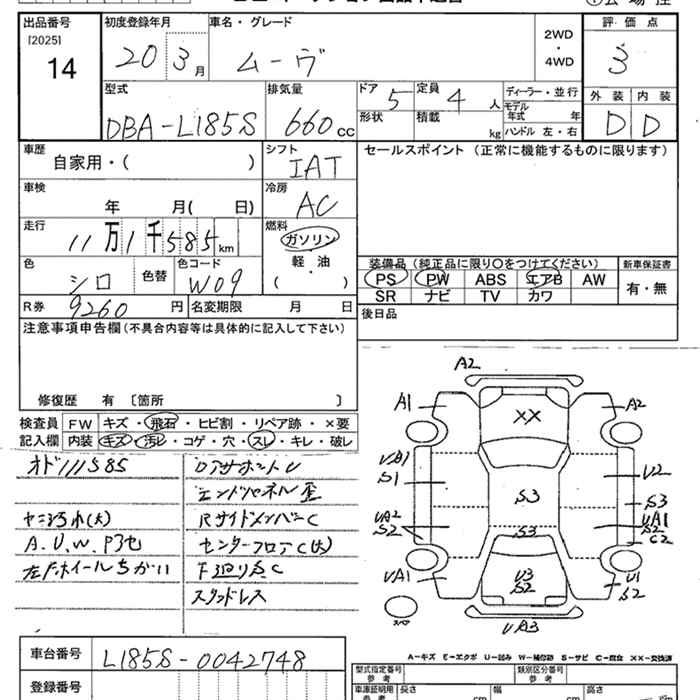 出品番号
[2025]
14
初度登録年月
20年3月
車名・グレード
ムーヴ
2WD
・
4WD
評価点
3
外装 内装
D D
型式
DBA-L185S
排気量
660cc
ドア 5
定員 4人
形状
積載 kg
ディーラー・並行
モデル年式 年
ハンドル 左・右
車歴
自家用・( )
シフト
IAT
セールスポイント (正常に機能するものに限ります)
車検
年 月( 日)
冷房
AC
走行
11万1千585km
燃料
ガソリン
軽・油
( )
色
シロ
色替
色コード
W09
装備品 (純正品に限り○をつけてください)
新車保証書
PS PW ABS エアB AW
SR ナビ TV カワ
有・無
R券 9260円
名変期限 月 日
後日品
注意事項申告欄 (不具合内容等は具体的に記入して下さい)
修復歴 有 〔箇所 〕
検査員記入欄
FW キズ・飛石・ヒビ割・リペア跡・×要
内装 キズ・汚レ・コゲ・穴・スレ・キレ・破レ
オド111585
エンドパネル歪
ヤニ汚れ(大)
RサイドメンバーC
A.U.W.P3セ
センターフロアC(大)
左Fホイールちがい
下廻り錆C
スタッドレス
A2
A1
××
A2
UA1
S1
U2
S3
S3
UA2
S2
UA1
S2
C2
S3
UA1
U3
S2
U1
S2
スペア
UA3
A-キズ E-エクボ U-凹み W-補修跡 S-サビ C-腐食 ××-交換済
車台番号
L185S-0042748
登録番号
型式指定番号
参考
類別区分番号
参考
車庫証明用
参考
長さ cm
幅 cm
高さ